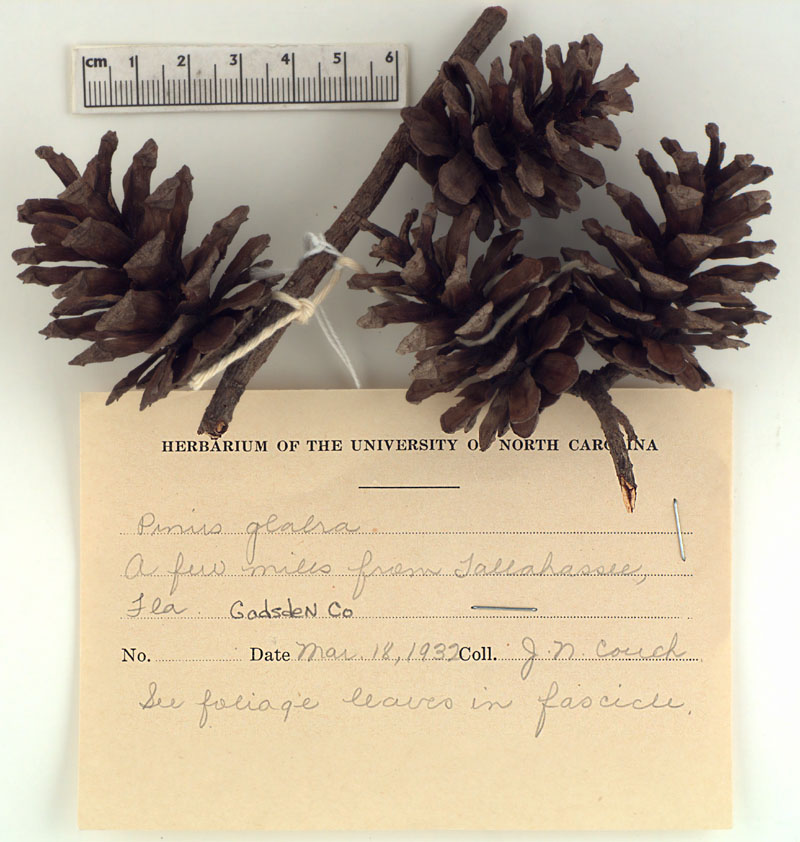 cm 1 2 3 4 5 6
HERBARIUM OF THE UNIVERSITY OF NORTH CAROLINA
Pinus glabra.
A few miles from Tallahassee,
Fla. Gadsden Co
No. Date Mar. 18, 1932 Coll. J. N. Couch
See foliage leaves in fascicle.